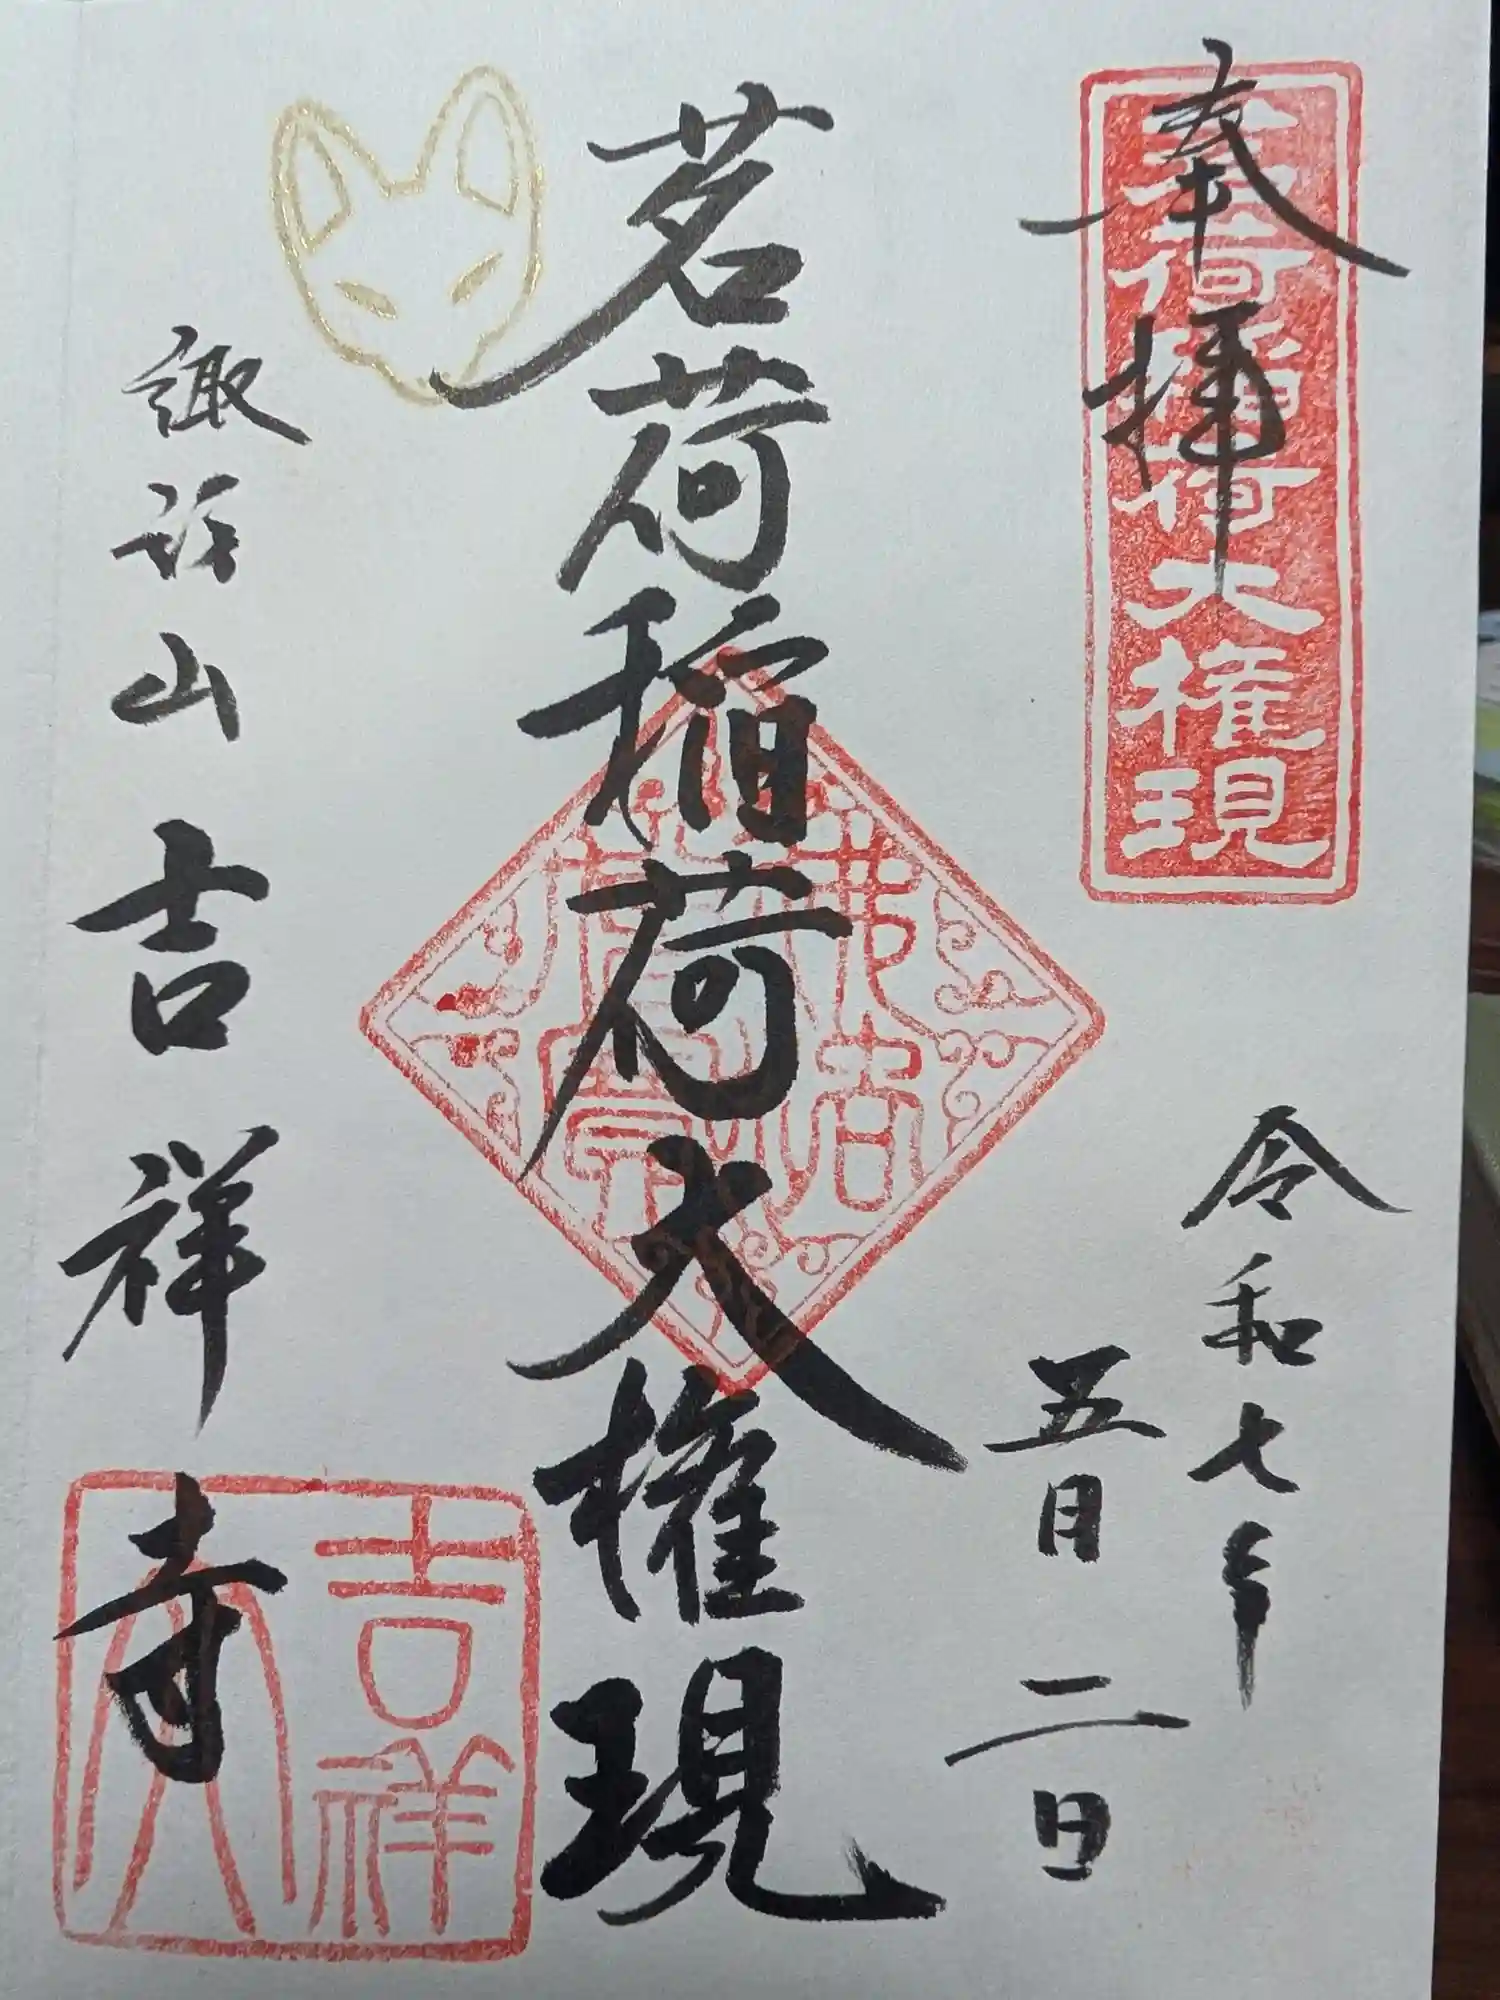 奉拝
茗荷稲荷大権現
令和七年
五月二日
茗荷稲荷大権現
諏訪山吉祥寺
吉祥